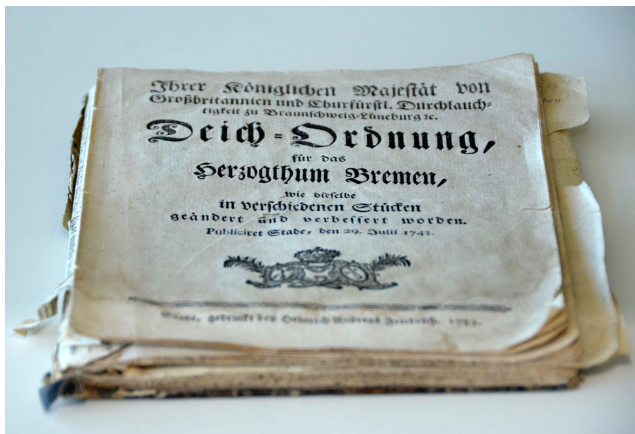 Ihrer Königlichen Majestät von
Großbritannien und Churfürstl. Durchlauch-
tigkeit zu Braunschweig-Lüneburg ꝛc.
Deich-Ordnung,
für das
Herzogthum Bremen,
wie dieselbe
in verschiedenen Stücken
geändert und verbessert worden.
Publiciret Stade, den 29. Julii 1743.
Stade, gedruckt bey Heinrich Andreas Friedrich.